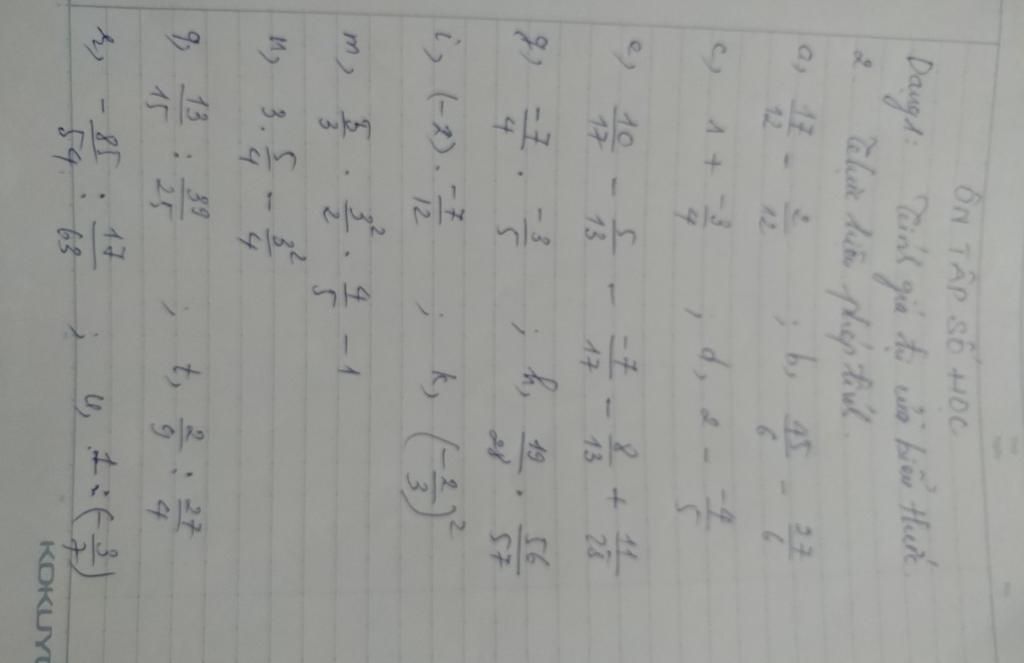 ÔN TẬP SỐ HỌC
Dạng 1: Tính giá trị của biểu thức.
2. Thực hiện phép tính.
a, 17/12 - 2/12 ; b, 45/6 - 27/6
c, 1 + -3/4 ; d, 2 - -4/5
e, 10/17 - 5/13 - -7/17 - 8/13 + 11/25
g, -7/4 . -3/5 ; h, 19/28 . 56/57
i, (-2) . -7/12 ; k, (-2/3)²
m, 5/3 . 3²/2 . 4/5 - 1
n, 3 . 5/4 - 3²/4
q, 13/15 : 39/25 ; t, 2/9 : 27/4
r, -85/54 : 17/63 ; u, 1 : (-3/7)
KOKUYO